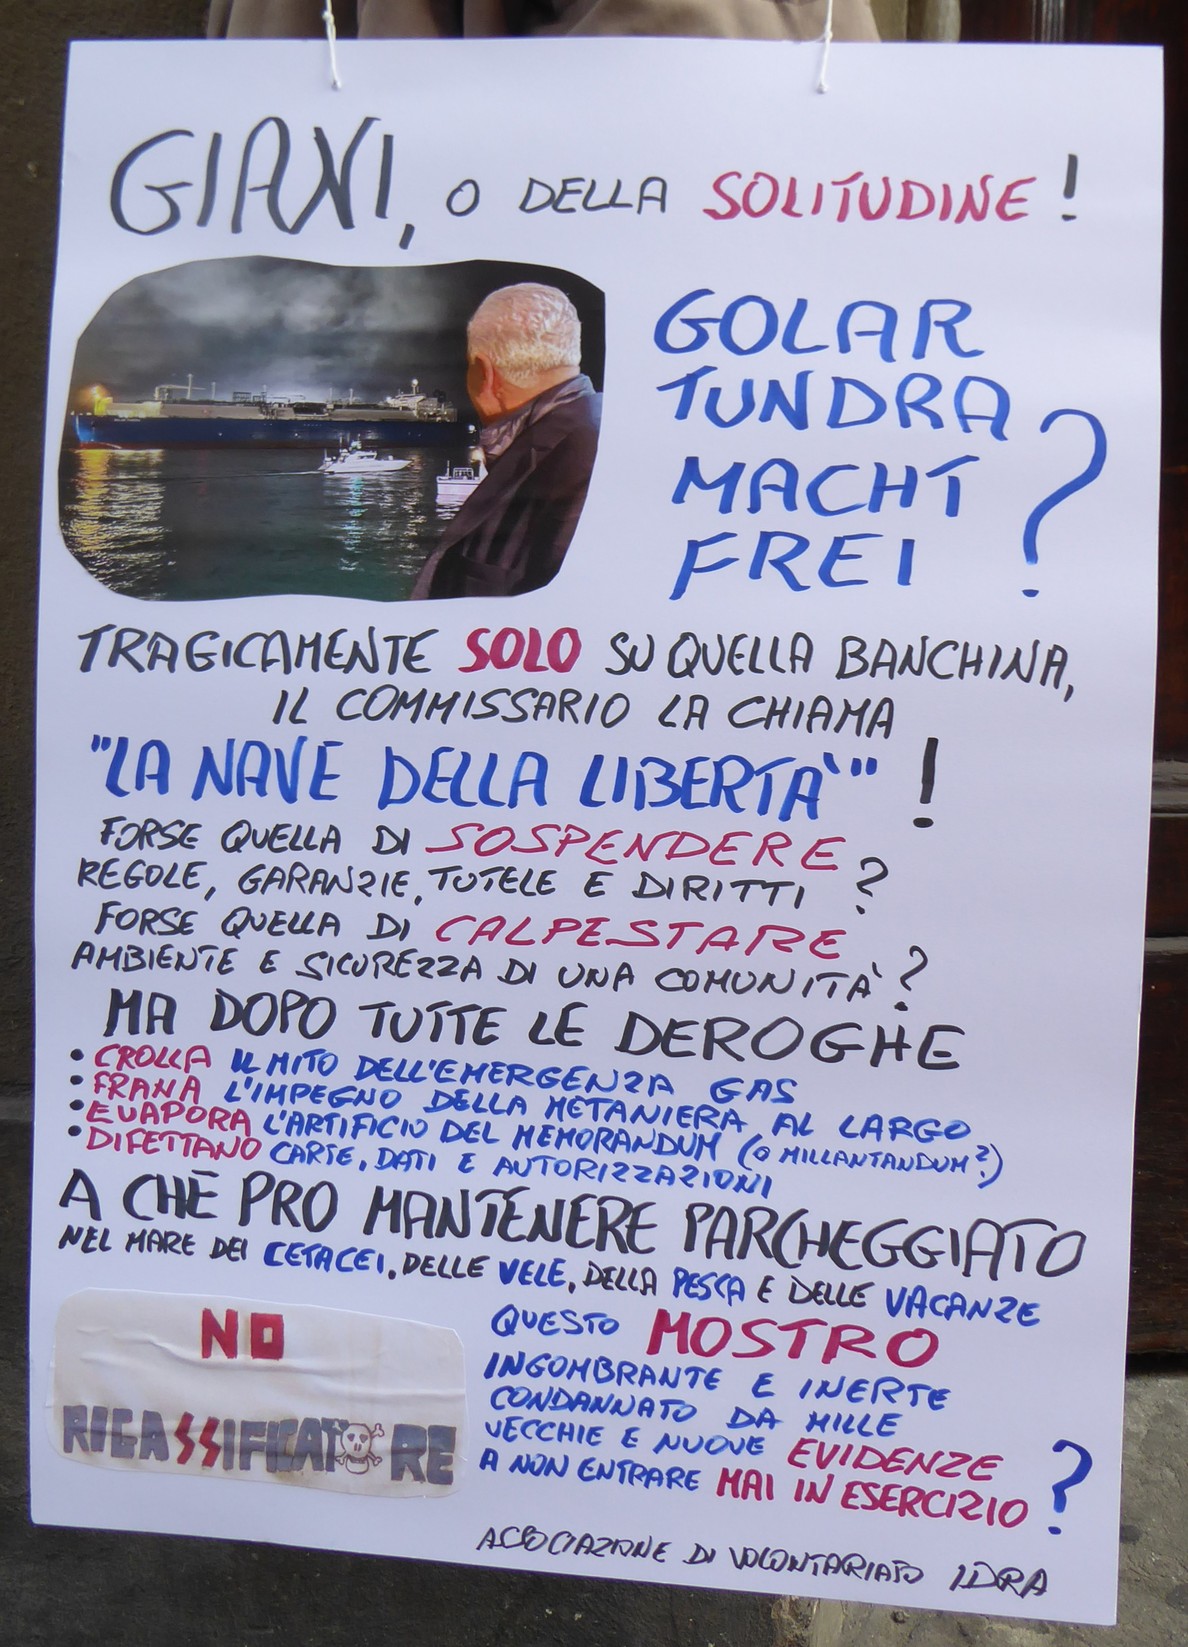 GIANI, O DELLA SOLITUDINE!
GOLAR
TUNDRA
MACHT
FREI?
TRAGICAMENTE SOLO SU QUELLA BANCHINA,
IL COMMISSARIO LA CHIAMA
"LA NAVE DELLA LIBERTÀ"!
FORSE QUELLA DI SOSPENDERE
REGOLE, GARANZIE, TUTELE E DIRITTI?
FORSE QUELLA DI CALPESTARE
AMBIENTE E SICUREZZA DI UNA COMUNITÀ?
MA DOPO TUTTE LE DEROGHE
• CROLLA IL MITO DELL'EMERGENZA GAS
• FRANA L'IMPEGNO DELLA METANIERA AL LARGO
• EVAPORA L'ARTIFICIO DEL MEMORANDUM (O MILLANTANDUM?)
• DIFETTANO CARTE, DATI E AUTORIZZAZIONI
A CHE PRO MANTENERE PARCHEGGIATO
NEL MARE DEI CETACEI, DELLE VELE, DELLA PESCA E DELLE VACANZE
QUESTO MOSTRO
INGOMBRANTE E INERTE
CONDANNATO DA MILLE
VECCHIE E NUOVE EVIDENZE
A NON ENTRARE MAI IN ESERCIZIO?
NO
RIGASSIFICATORE
ASSOCIAZIONE DI VOLONTARIATO IDRA